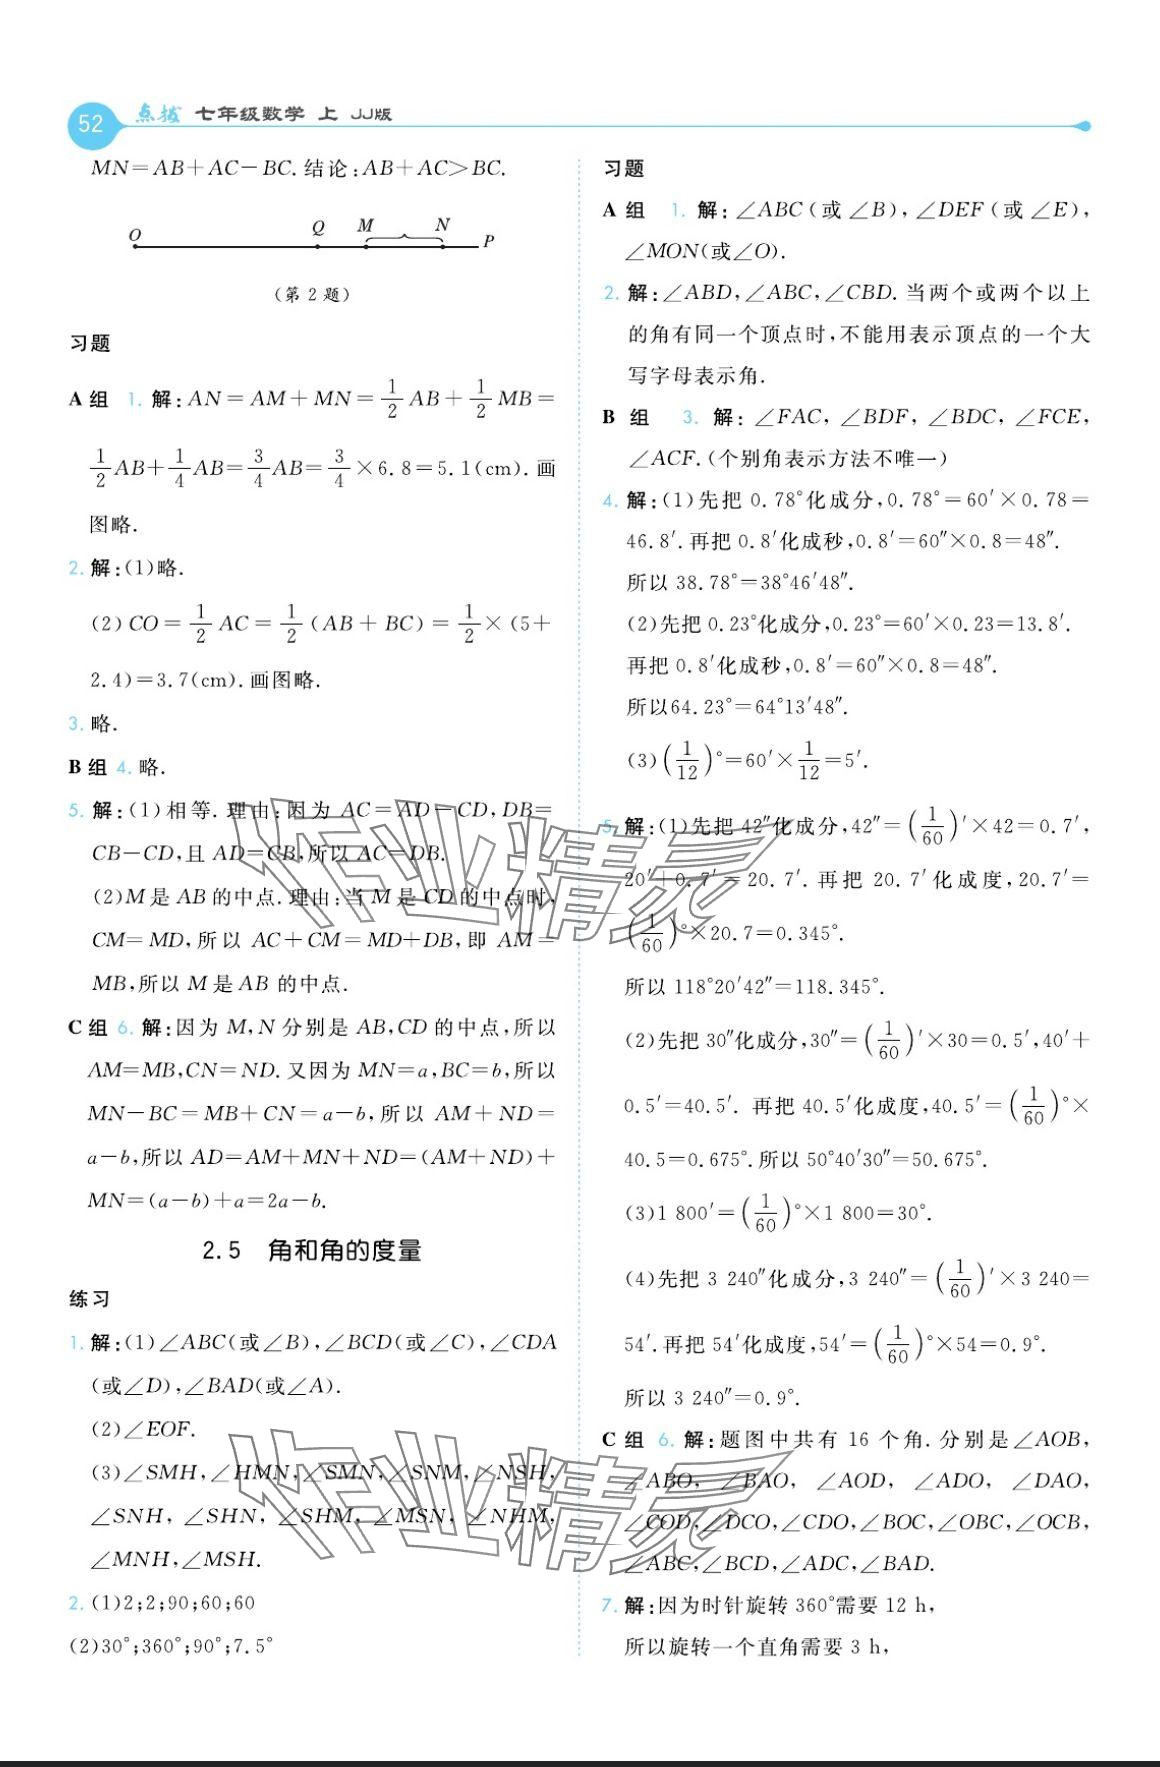 52 点拨 七年级数学 上 JJ版
MN=AB+AC-BC.结论:AB+AC>BC.
O Q M N P
(第2题)
习题
A组 1. 解:AN=AM+MN=1/2 AB+1/2 MB=
1/2 AB+1/4 AB=3/4 AB=3/4×6.8=5.1(cm).画
图略.
2. 解:(1)略.
(2)CO=1/2 AC=1/2(AB+BC)=1/2×(5+
2.4)=3.7(cm).画图略.
3. 略.
B组 4. 略.
5. 解:(1)相等.理由:因为AC=AD-CD,DB=
CB-CD,且AD=CB,所以AC=DB.
(2)M是AB的中点.理由:当M是CD的中点时,
CM=MD,所以AC+CM=MD+DB,即AM=
MB,所以M是AB的中点.
C组 6. 解:因为M,N分别是AB,CD的中点,所以
AM=MB,CN=ND.又因为MN=a,BC=b,所以
MN-BC=MB+CN=a-b,所以AM+ND=
a-b,所以AD=AM+MN+ND=(AM+ND)+
MN=(a-b)+a=2a-b.
2.5 角和角的度量
练习
1. 解:(1)∠ABC(或∠B),∠BCD(或∠C),∠CDA
(或∠D),∠BAD(或∠A).
(2)∠EOF.
(3)∠SMH,∠HMN,∠SMN,∠SNM,∠NSH,
∠SNH,∠SHN,∠SHM,∠MSN,∠NHM,
∠MNH,∠MSH.
2. (1)2;2;90;60;60
(2)30°;360°;90°;7.5°
习题
A组 1. 解:∠ABC(或∠B),∠DEF(或∠E),
∠MON(或∠O).
2. 解:∠ABD,∠ABC,∠CBD.当两个或两个以上
的角有同一个顶点时,不能用表示顶点的一个大
写字母表示角.
B组 3. 解:∠FAC,∠BDF,∠BDC,∠FCE,
∠ACF.(个别角表示方法不唯一)
4. 解:(1)先把0.78°化成分,0.78°=60′×0.78=
46.8′.再把0.8′化成秒,0.8′=60″×0.8=48″.
所以38.78°=38°46′48″.
(2)先把0.23°化成分,0.23°=60′×0.23=13.8′.
再把0.8′化成秒,0.8′=60″×0.8=48″.
所以64.23°=64°13′48″.
(3)(1/12)°=60′×1/12=5′.
5. 解:(1)先把42″化成分,42″=(1/60)′×42=0.7′,
20′+0.7′=20.7′.再把20.7′化成度,20.7′=
(1/60)°×20.7=0.345°.
所以118°20′42″=118.345°.
(2)先把30″化成分,30″=(1/60)′×30=0.5′,40′+
0.5′=40.5′.再把40.5′化成度,40.5′=(1/60)°×
40.5=0.675°.所以50°40′30″=50.675°.
(3)1 800′=(1/60)°×1 800=30°.
(4)先把3 240″化成分,3 240″=(1/60)′×3 240=
54′.再把54′化成度,54′=(1/60)°×54=0.9°.
所以3 240″=0.9°.
C组 6. 解:题图中共有16个角.分别是∠AOB,
∠ABO,∠BAO,∠AOD,∠ADO,∠DAO,
∠COD,∠DCO,∠CDO,∠BOC,∠OBC,∠OCB,
∠ABC,∠BCD,∠ADC,∠BAD.
7. 解:因为时针旋转360°需要12 h,
所以旋转一个直角需要3 h,
作业精灵
作业精灵